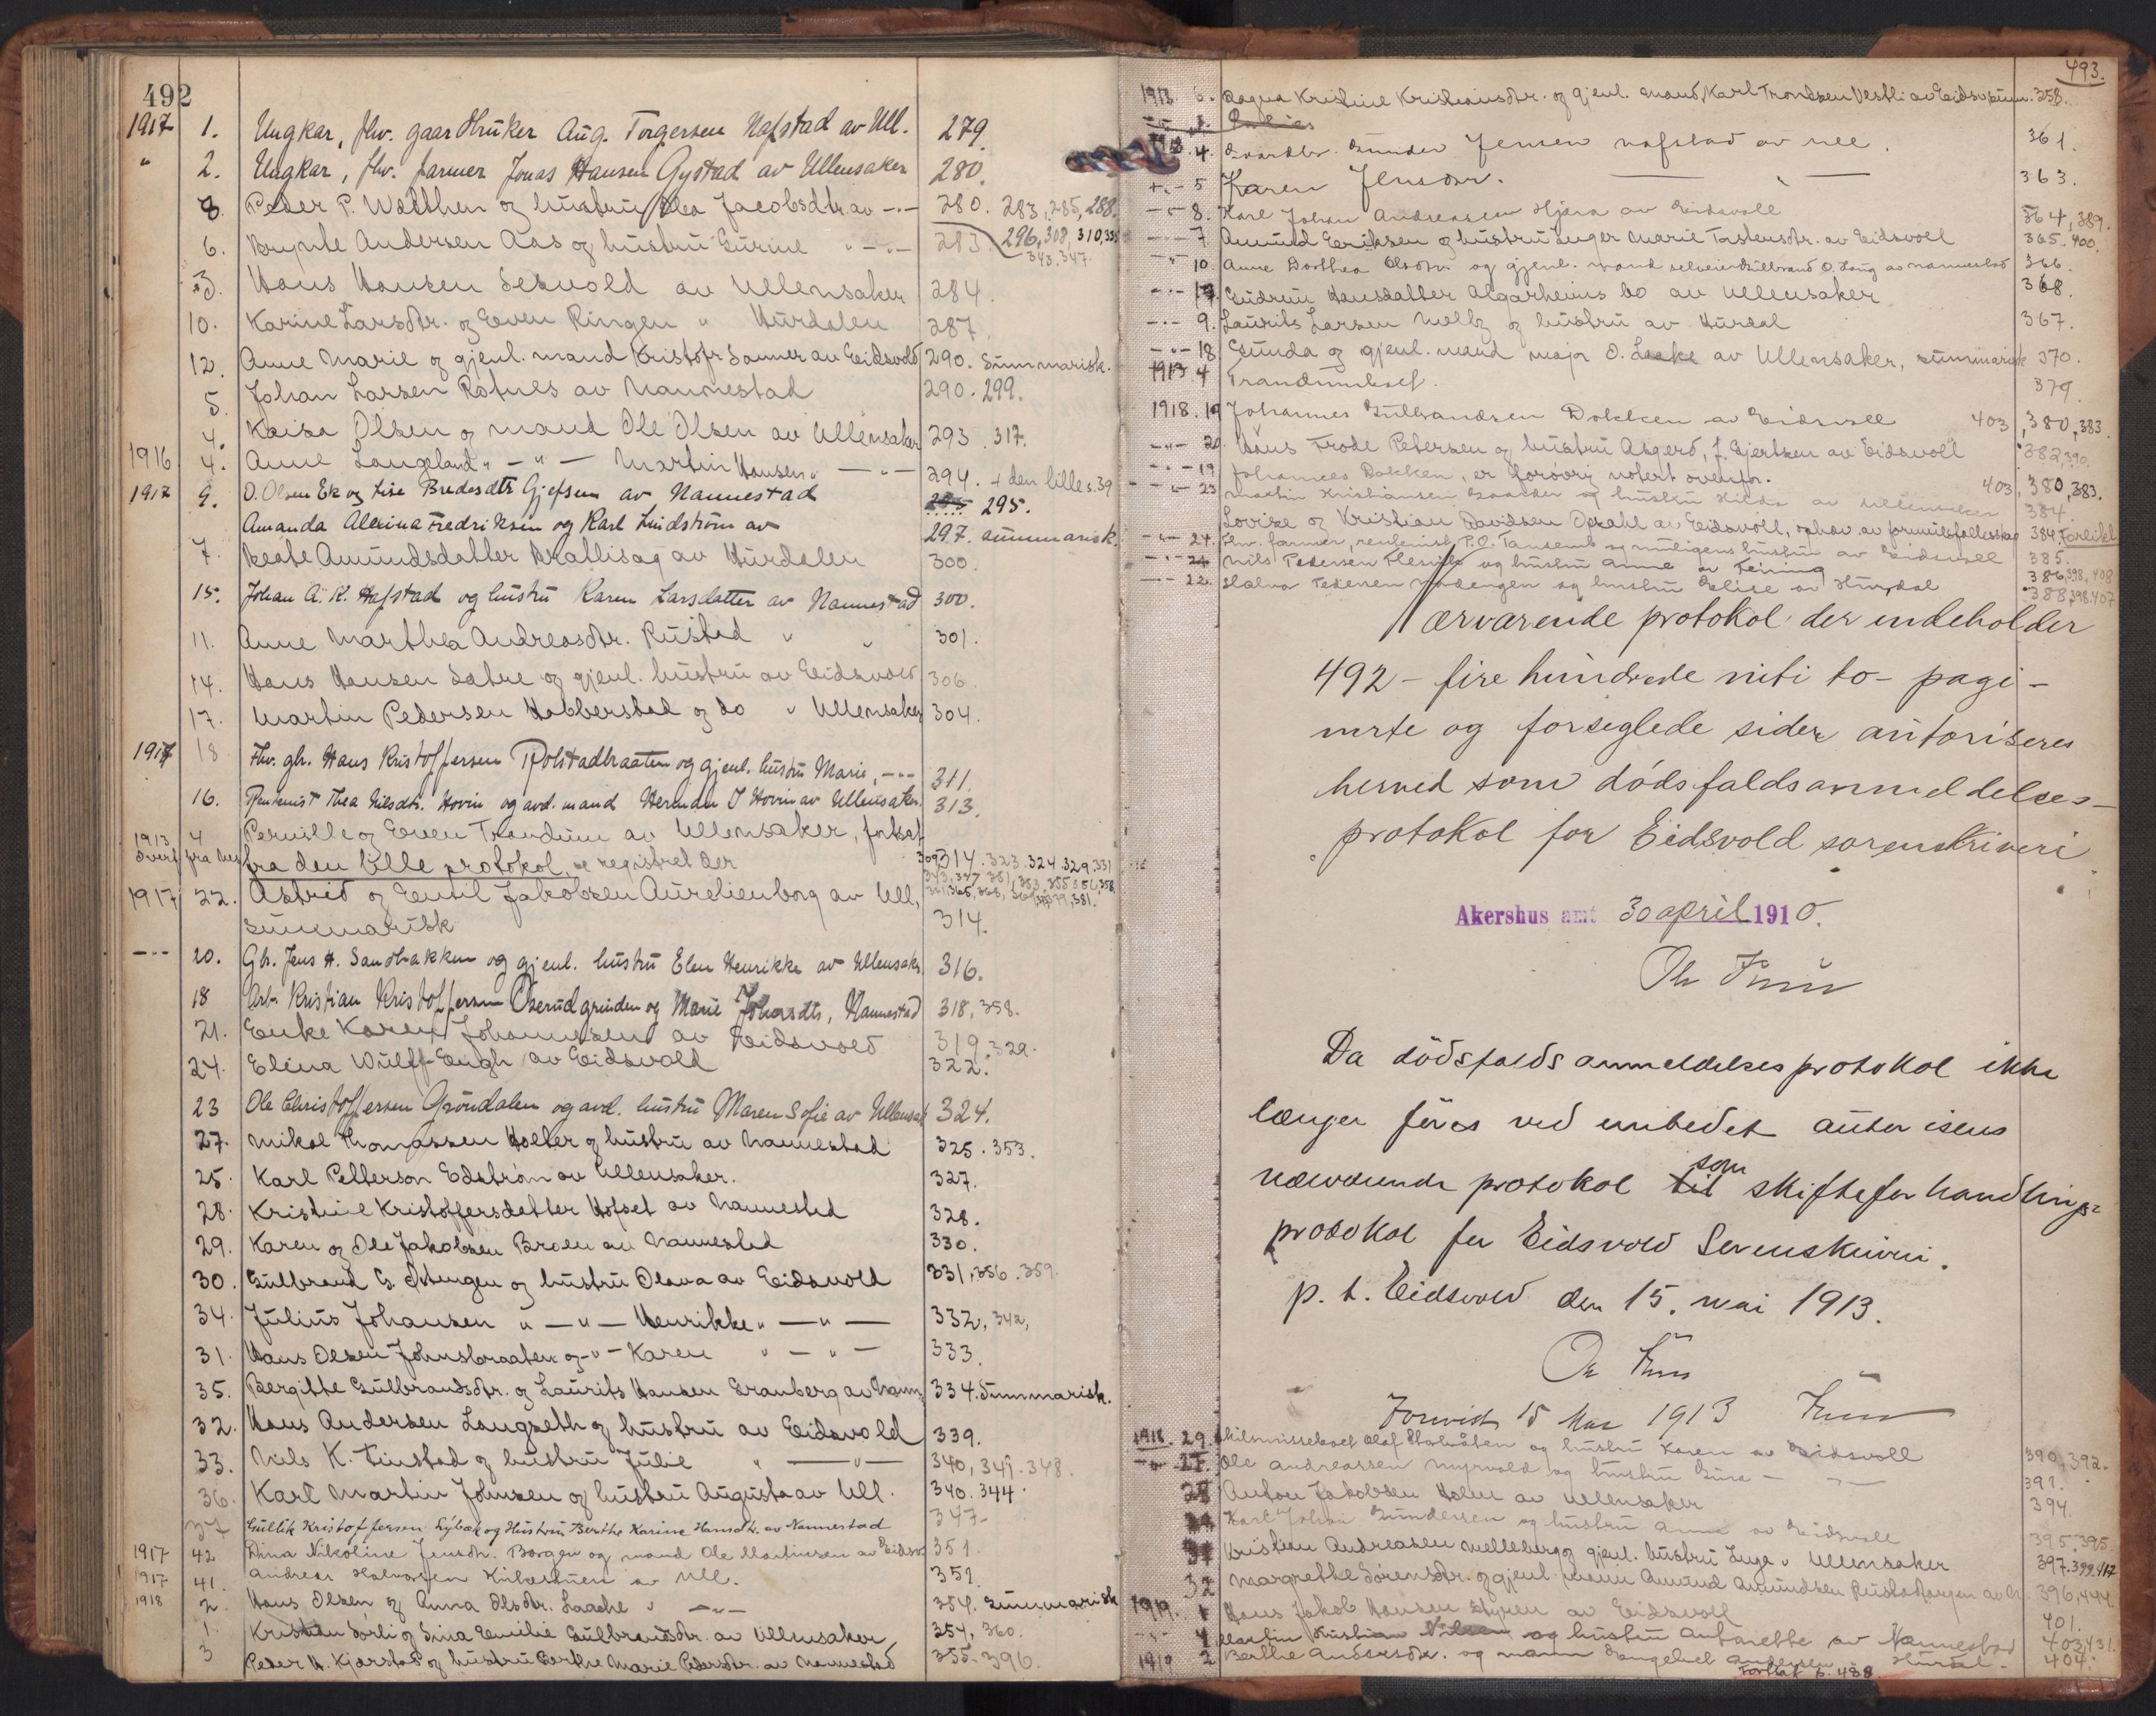 492
1917 1. Ungkar, fhv. gaardbruker Aug. Torgersen Nafstad av Ull. 279.
" 2. Ungkar, fhv. farmer Jonas Hansen Gystad av Ullensaker 280.
8. Peder P. Wolthen og hustru Thea Jacobsdtr. av -"- 280. 283, 285, 288.
296, 308, 310, 335
343. 347.
6. Brynte Andersen Aas og hustru Gurine " -"- 283.
3. Hans Hansen Sesvold av Ullensaker 284.
10. Karine Larsdtr. og Even Ringen " Hurdalen 287.
12. Anne Marie og gjenl. mand Kristofr Sanner av Eidsvold 290. Summarisk.
5. Johan Larsen Rotnes av Nannestad 290. 299.
4. Kaisa Olsen og mand Ole Olsen av Ullensaker 293. 317.
1916 4. Anne Langeland " - " - Martin Hansen " - " - 294. + den lille s. 39
1917 9. O. Olsen Ek og Lise Bredesdtr Gjefsen av Nannestad 295.
Amanda Alexina Fredriksen og Karl Lindström av 297. summarisk.
7. Beate Amundsdatter Brallisag av Hurdalen 300.
15. Johan A. K. Hafstad og hustru Karen Larsdatter av Nannestad 300.
11. Anne Marthea Andreasdtr. Rustad " " 301.
14. Hans Hansen Sætre og gjenl. hustru av Eidsvold 306.
17. Martin Pedersen Habberstad og do " Ullensaker 304.
1917 18 Fhv. gb. Hans Kristoffersen Rolstadbraaten og gjenl. hustru Marie, -"- 311.
16. Rentenist Thea Nilsdtr. Hovin og avd. mand Herman J Hovin av Ullensaker 313.
1913 4 Pernille og Even Trandum av Ullensaker, fortsat
overf fra den lille protokol, se registret der 309, 314. 323. 324. 329. 331
1917 22. Astrid og Emil Jakobsen Aurelienborg av Ull,
summarisk 314.
-"- 20. Gb. Jens H. Sandbakken og gjenl. hustru Elen Henrikke av Ullensaker 316.
18 Arb. Kristian Kristoffersen Oserudgrinden og Marie Johansdtr, Nannestad 318, 358.
21. Enke Karen Johannesen av Eidsvold 319, 329.
24. Elina Wulff-Engh av Eidsvold 322.
23 Ole Christoffersen Gröndalen og avd. hustru Maren Sofie av Ullensak 324.
27. Mikal Thomassen Holter og hustru av Nannestad 325. 353.
25. Karl Petterson Edström av Ullensaker. 327.
28. Kristine Kristoffersdatter Hofset av Nannestad 328.
29. Karen og Ole Jakobsen Broen av Nannestad 330.
30. Gulbrand G. Østengen og hustru Olava av Eidsvold 331, 356. 359.
34. Julius Johansen " - " - Henrikke " - " - 332, 342,
31. Hans Olsen Johnsbraaten og -"- Karen " - " - 333.
35. Bergitte Gulbrandsdtr. og Laurits Hansen Granberg av Nann 334. Summarisk.
32. Hans Andersen Langseth og hustru av Eidsvold 339.
33. Nils K. Finstad og hustru Julie " - " - 340, 341. 348.
36. Karl Martin Johnsen og hustru Augusta av Ull. 340. 344.
37 Gullik Kristoffersen Lybæk og Hustru Berthe Karine Hansdtr. av Nannestad 347-
1917 42 Dina Nikoline Jensdtr. Borgen og mand Ole Martinsen av Eidsv 351.
1917 41. Andreas Halvorsen av Ull. 352.
1918 2. Hans Olsen og Anna Olsdtr. Laache " -"- 354. Summarisk
1. Kristian Sørli og Sina Emilie Gulbrandsdtr. av Ullensaker 354, 360.
3 Peder H. Kjærstad og hustru Berthe Marie Pedersdtr. av Nannestad 355. 396.
493.
1918 6. Dagna Kristine Kristiansdtr. og gjenl. mand, Karl Trondsen Vestli av Eidsv 358.
4. Gunder Jensen Nafstad av Ull. 361.
-"- 5 Karen Jensdtr. - " - 363.
-"- 8. Karl Johan Andreassen Hjera av Eidsvoll 364, 389.
-"- 7 Amund Eriksen og hustru Inger Marie Torstensdtr. av Eidsvoll 365. 400.
-"- 10 Anne Dorthea Olsdtr. og gjenl. mand selveier Gulbrand O. Laug av Nannestad 366.
Gudrun Hansdatter Algarheims bo av Ullensaker 368.
-"- 9. Laurits Larsen Melby og hustru av Hurdal 367.
-"- 18 Gunda og gjenl. mand major O. Laake av Ullensaker, summarisk 370.
1913 4 Trandumboet. 379.
1918. 19 Johannes Gulbrandsen Dokken av Eidsvoll 403, 380, 383.
-"- 20. Hans Frode Petersen og hustru Asgerd, f. Gjertsen av Eidsvoll 382, 390.
-"- 19 Johannes Dokken, er forøvrig notert ovenfor. 403, 380, 383.
-"- 23 Martin Kristiansen og hustru av Ullensaker 384.
Lovise og Kristian Davidsen Opsahl av Eidsvoll, ophav. av formuesfællesskap 384. Forlikt
-"- 24. Fhv. farmer, rentenist P.O. Tansem og hustru av Eidsvoll 385.
-"- 21 Nils Pedersen og hustru Anne av Feiring 386, 398, 408
-"- 22. Halvor Pedersen og hustru Elise av Hurdal 388, 398. 407
Nærværende protokol der indeholder
492 - fire hundrede niti to - pagi-
nerte og forseglede sider autoriseres
herved som dødsfaldsanmeldelses-
protokol for Eidsvold sorenskriveri
Akershus amt 30 april 1910.
Da dödsfaldsanmeldelsesprotokol ikke
længer føres ved embedet autoriseres
nærværende protokol som skifteforhandlings-
protokol for Eidsvold Sorenskriveri.
p. t. Eidsvold den 15. mai 1913.
Forevist 15 Mai 1913
1918. 29. Skilsmisseboet Olaf og hustru Karen av Eidsvoll 390, 392.
-"- 27. Ole Andreassen Myrvold og hustru - " - 392.
28 Anton Jakobsen Holm av Ullensaker 394.
Karl Johan Gundersen og hustru Anna av Eidsvoll 395, 395.
31 Kristian Andreassen Melleberg og gjenl. hustru Inge " Ullensaker 397. 399, 412
32 Margrethe Sörensdtr. og gjenl. mann Amund Amundsen 396, 444.
1919. 1 Hans Jakob Hansen Styren av Eidsvoll 401.
-"- 4 Martin Kristian Nilsen og hustru Antonette av Nannestad 403, 431.
1919 2 Berthe Andersdtr. og mann Engebret Andersen Hurdal. 404.
Fortsat s. 488